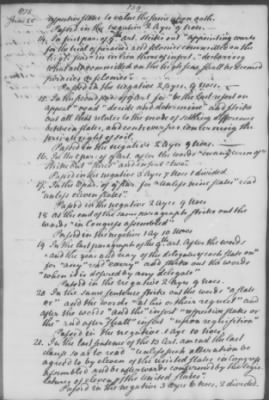 139
1778
June 25
respective states to value the same upon oath.
Passed in the negative 2 Ayes 9 Noes.
14. In first par: of 9 Art. strike out "appointing courts
for the trial of piracies and felonies committed on the
high seas" in lieu insert "declaring
what acts committed on the high seas shall be deemed
piracies & felonies".
Passed in the negative 2 Ayes, 9 Noes.
15. In the second par: of 9 Art.
appeal" read "decide and determine" and strike
out all that relates to the mode of settling differences
between states, and controversies concerning the
private right of soil.
Passed in the negative 2 Ayes 9 Noes.
16. In the 5 par. of 9 Art. after the words
strike out
Passed in the negative 2 Ayes 7 Noes 1 divided.
17. In the par. of 9 Art. for "unless nine states" read
"unless eleven states".
Passed in the negative 2 Ayes 9 Noes.
18. At the end of the same paragraph strike out the
words "in Congress assembled"
Passed in the negative 1 Ay 10 Noes
19. In the last paragraph of the 9th Art. after the words
"and the yeas and nays of the delegates of each state on
for "any" read "every" and strike out the words
"when it is desired by any delegate"
Passed in the negative 2 Ayes 9 Noes.
20. In the same sentence strike out the words "a state
or" and the words "at his or their request" and
after the words "and the" insert "respective states or
the" and after insert "upon requisition"
Passed in the negative 1 Ay 10 Noes.
21. In the last sentence of the 13 Art. amend the last
clause so as to read "unless such alteration be
agreed to by eleven of the united states in Congress
assembled and be afterwards confirmed by the legis-
latures of eleven of the united states".
Passed in the negative 3 Ayes 6 Noes, 2 divided.